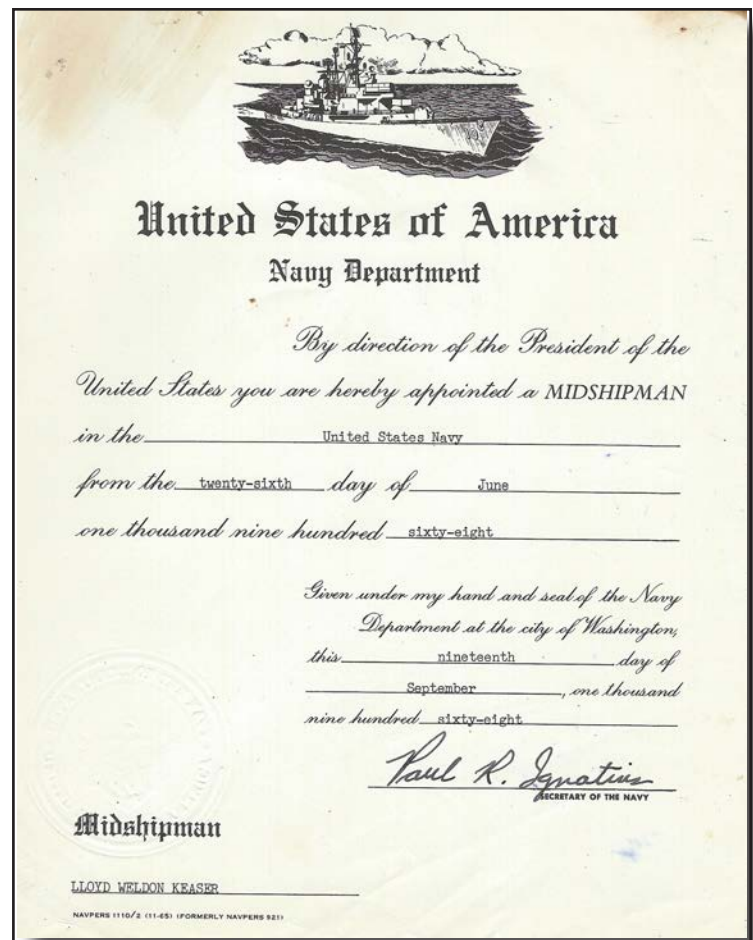 United States of America
Navy Department
By direction of the President of the
United States you are hereby appointed a MIDSHIPMAN
in the United States Navy
from the twenty-sixth day of June
one thousand nine hundred sixty-eight
Given under my hand and seal of the Navy
Department at the city of Washington,
this nineteenth day of
September, one thousand
nine hundred sixty-eight
Paul R. Ignatius
SECRETARY OF THE NAVY
Midshipman
LLOYD WELDON KEASER
NAVPERS 1110/2 (11-65) (FORMERLY NAVPERS 921)